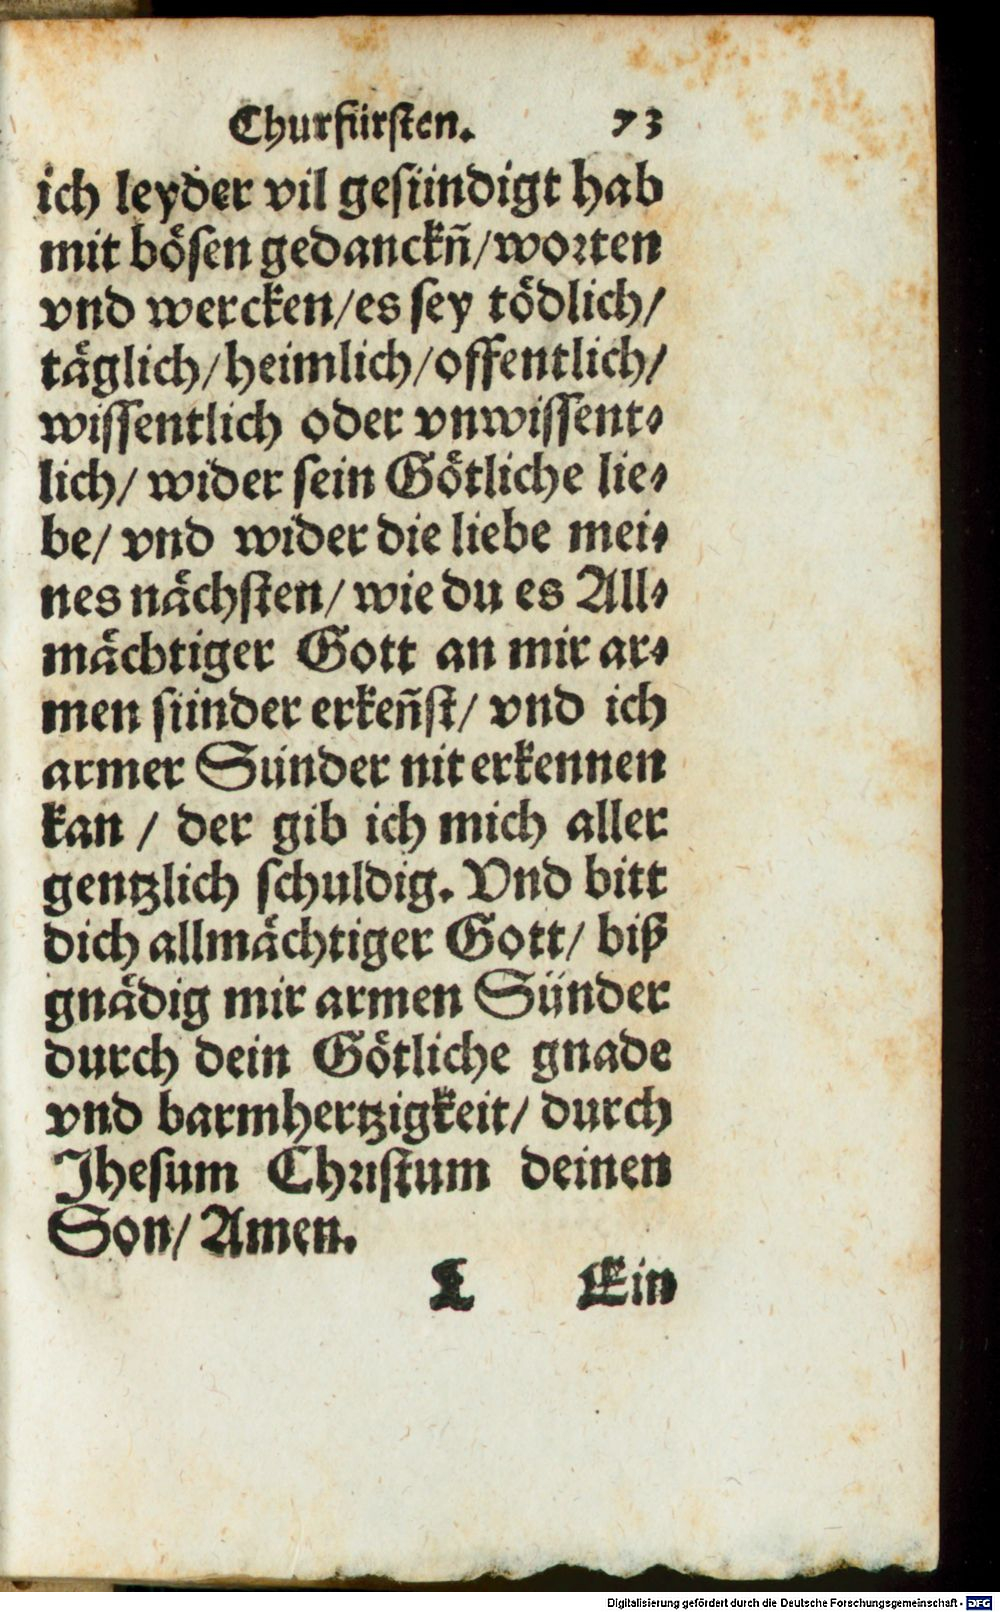 Churfürsten. 73
ich leyder vil gesündigt hab
mit bösen gedanckñ/worten
vnd wercken/es sey tödlich/
täglich/heimlich/offentlich/
wissentlich oder vnwissent⸗
lich/ wider sein Götliche lie⸗
be/ vnd wider die liebe mei⸗
nes nächsten/ wie du es All⸗
mächtiger Gott an mir ar⸗
men sünder erkeñst/ vnd ich
armer Sünder nit erkennen
kan / der gib ich mich aller
gentzlich schuldig. Vnd bitt
dich allmächtiger Gott/ biß
gnädig mir armen Sünder
durch dein Götliche gnade
vnd barmhertzigkeit/ durch
Jhesum Christum deinen
Son/ Amen.
L Ein
Digitalisierung gefördert durch die Deutsche Forschungsgemeinschaft - DFG